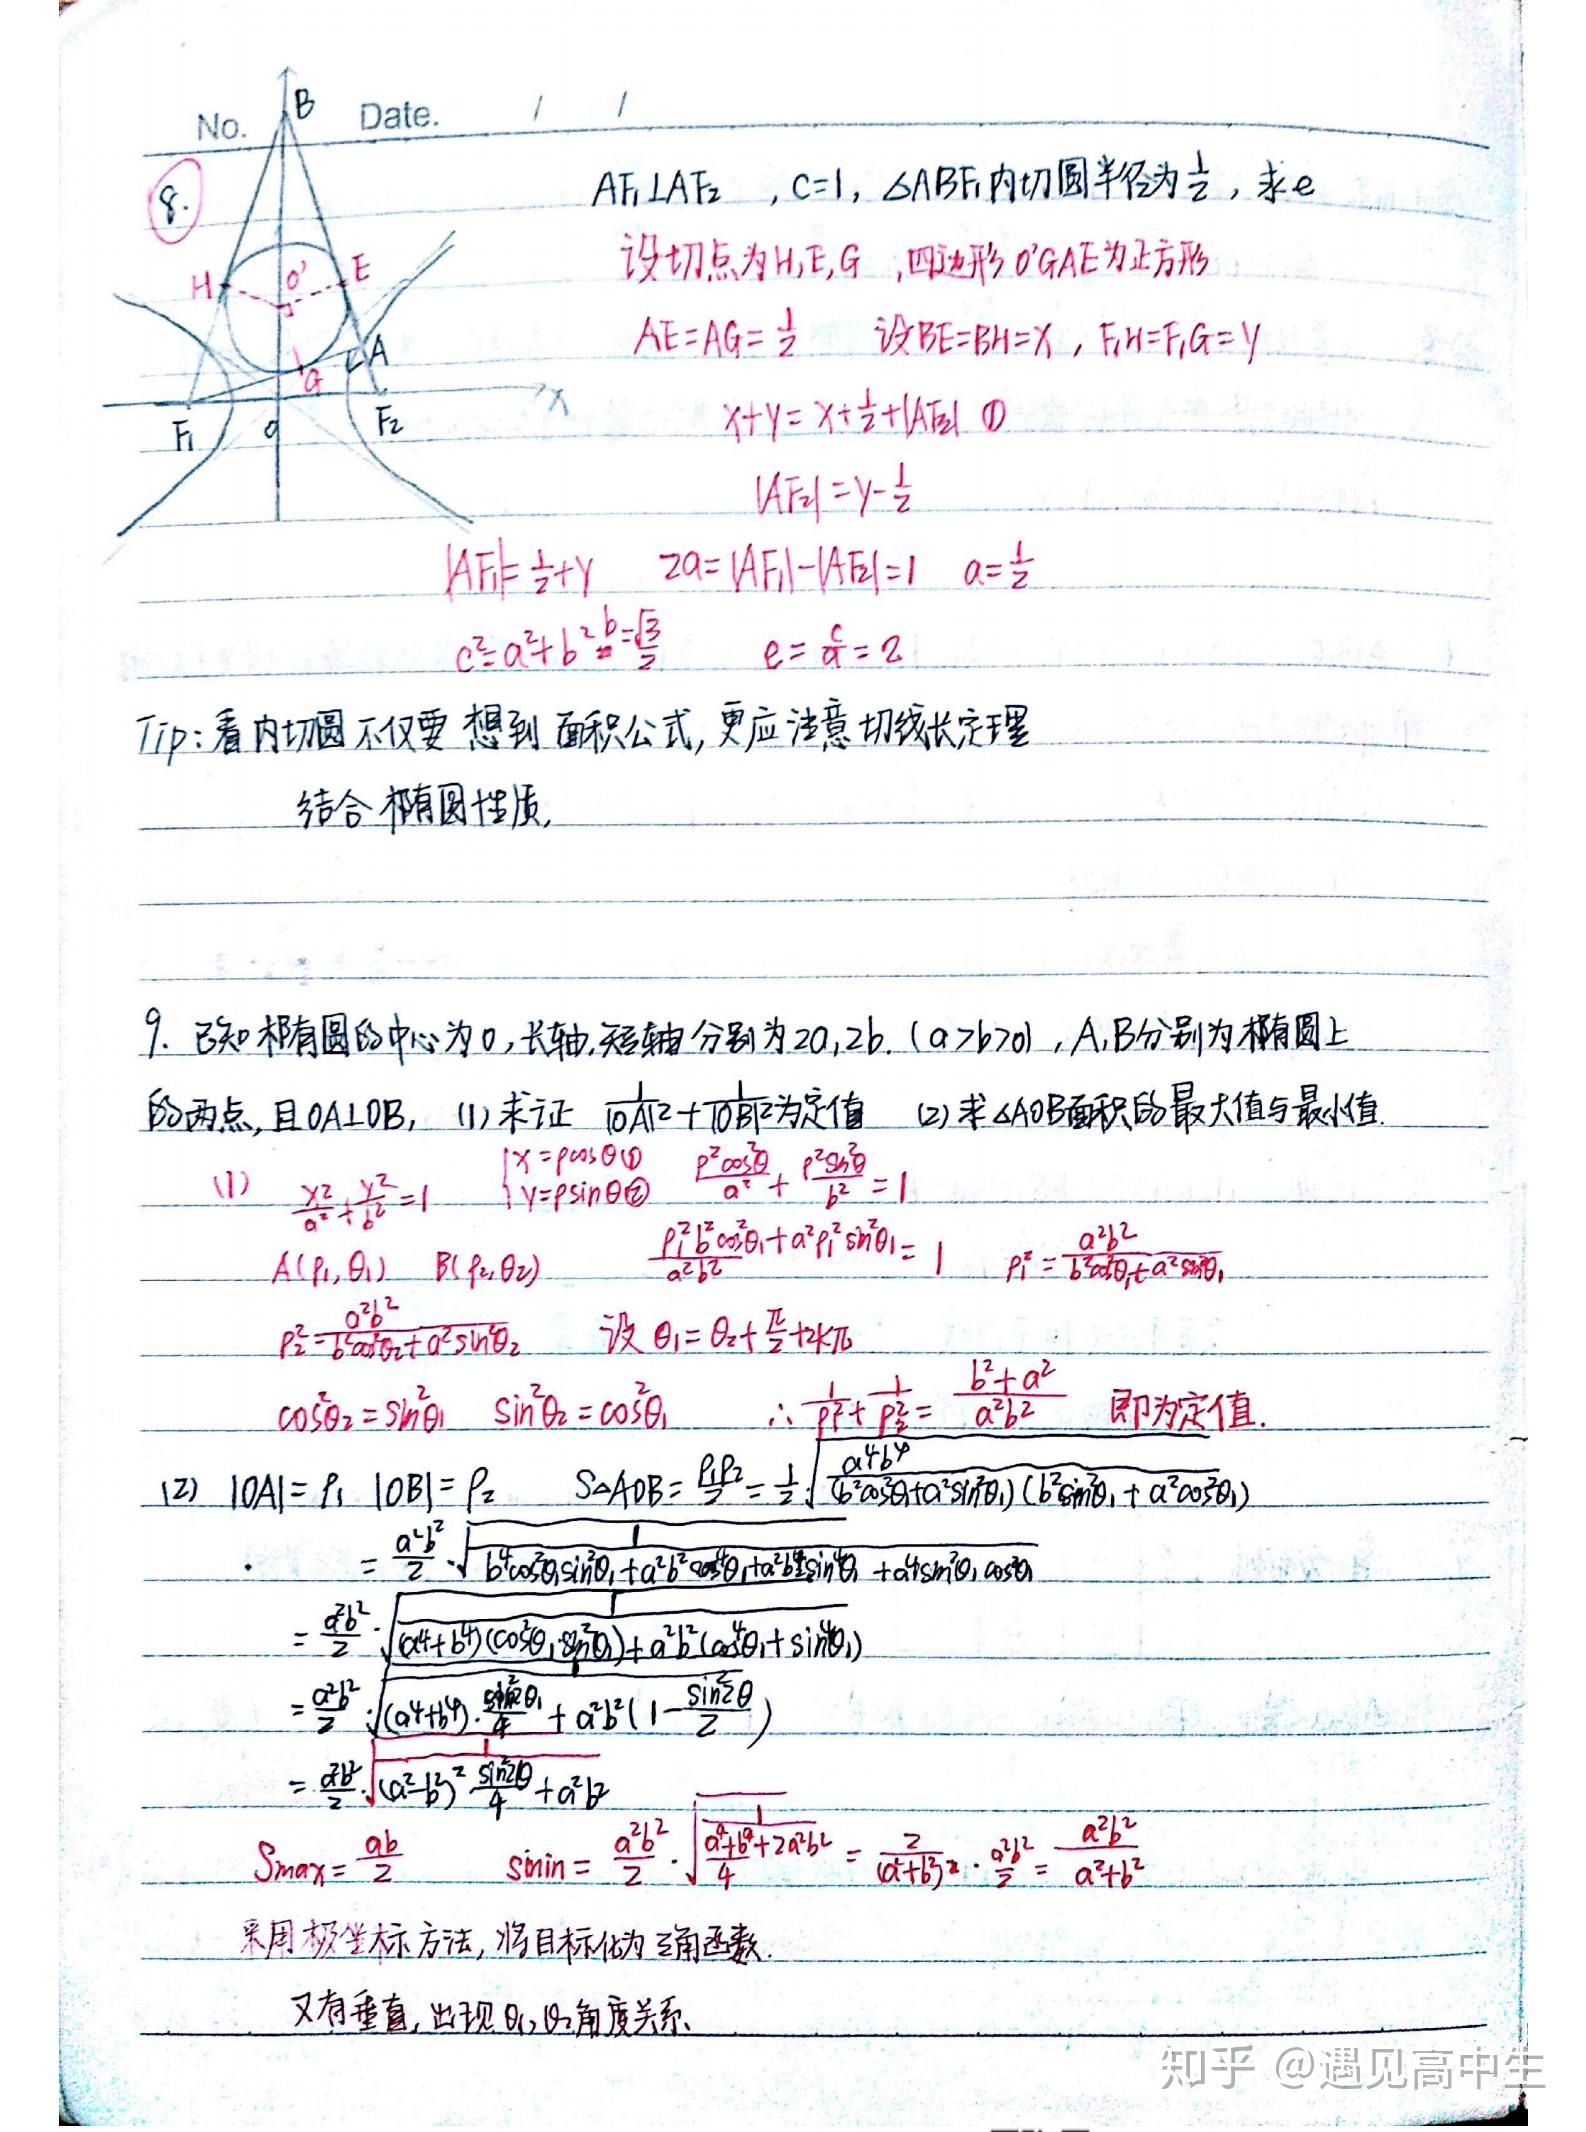 No. Date. / /
B
8.
AF₁⊥AF₂ , C=1, △ABF₁内切圆半径为1/2, 求e
设切点为H,E,G ,四边形O'GAE为正方形
H O' E
AE=AG=1/2 设BE=BH=X, F₁H=F₁G=Y
A
G
X
F₁ O F₂
X+Y=X+1/2+|AF₂| ①
|AF₂|=Y-1/2
|AF₁|=1/2+Y 2a=|AF₁|-|AF₂|=1 a=1/2
c²=a²+b² b=√3/2 e=c/a=2
Tip:看内切圆不仅要想到面积公式,更应注意切线长定理
结合椭圆性质.
9. 已知椭圆的中心为O,长轴.短轴分别为2a,2b.(a>b>0),A,B分别为椭圆上
的两点,且OA⊥OB, (1)求证 1/|OA|²+1/|OB|²为定值 (2)求△AOB面积的最大值与最小值.
(1) x²/a²+y²/b²=1 {x=ρcosθ① y=ρsinθ② ρ²cos²θ/a²+ρ²sin²θ/b²=1
A(ρ₁,θ₁) B(ρ₂,θ₂) (ρ₁²b²cos²θ₁+a²ρ₁²sin²θ₁)/a²b²=1 ρ₁²=a²b²/(b²cos²θ₁+a²sin²θ₁)
ρ₂²=a²b²/(b²cos²θ₂+a²sin²θ₂) 设θ₁=θ₂+π/2+2kπ
cos²θ₂=sin²θ₁ sin²θ₂=cos²θ₁ ∴1/ρ₁²+1/ρ₂²=(b²+a²)/a²b² 即为定值.
(2) |OA|=ρ₁ |OB|=ρ₂ S△AOB=ρ₁ρ₂/2=1/2√(a⁴b⁴/((b²cos²θ₁+a²sin²θ₁)(b²sin²θ₁+a²cos²θ₁)))
=a²b²/2·√(1/(b⁴cos²θ₁sin²θ₁+a²b²cos⁴θ₁+a²b²sin⁴θ₁+a⁴sin²θ₁cos²θ₁))
=a²b²/2·√(1/((a⁴+b⁴)(cos²θ₁sin²θ₁)+a²b²(cos⁴θ₁+sin⁴θ₁)))
=a²b²/2·√(1/((a⁴+b⁴)·sin²2θ₁/4+a²b²(1-sin²2θ/2)))
=a²b²/2·√(1/((a²-b²)²sin²2θ/4+a²b²))
Smax=ab/2 Smin=a²b²/2·√(1/((a⁴+b⁴+2a²b²)/4))=2/(a²+b²)²·a²b²/2=a²b²/(a²+b²)
采用极坐标方法,将目标化为三角函数.
又有垂直,出现θ₁,θ₂角度关系.
知乎 @遇见高中生